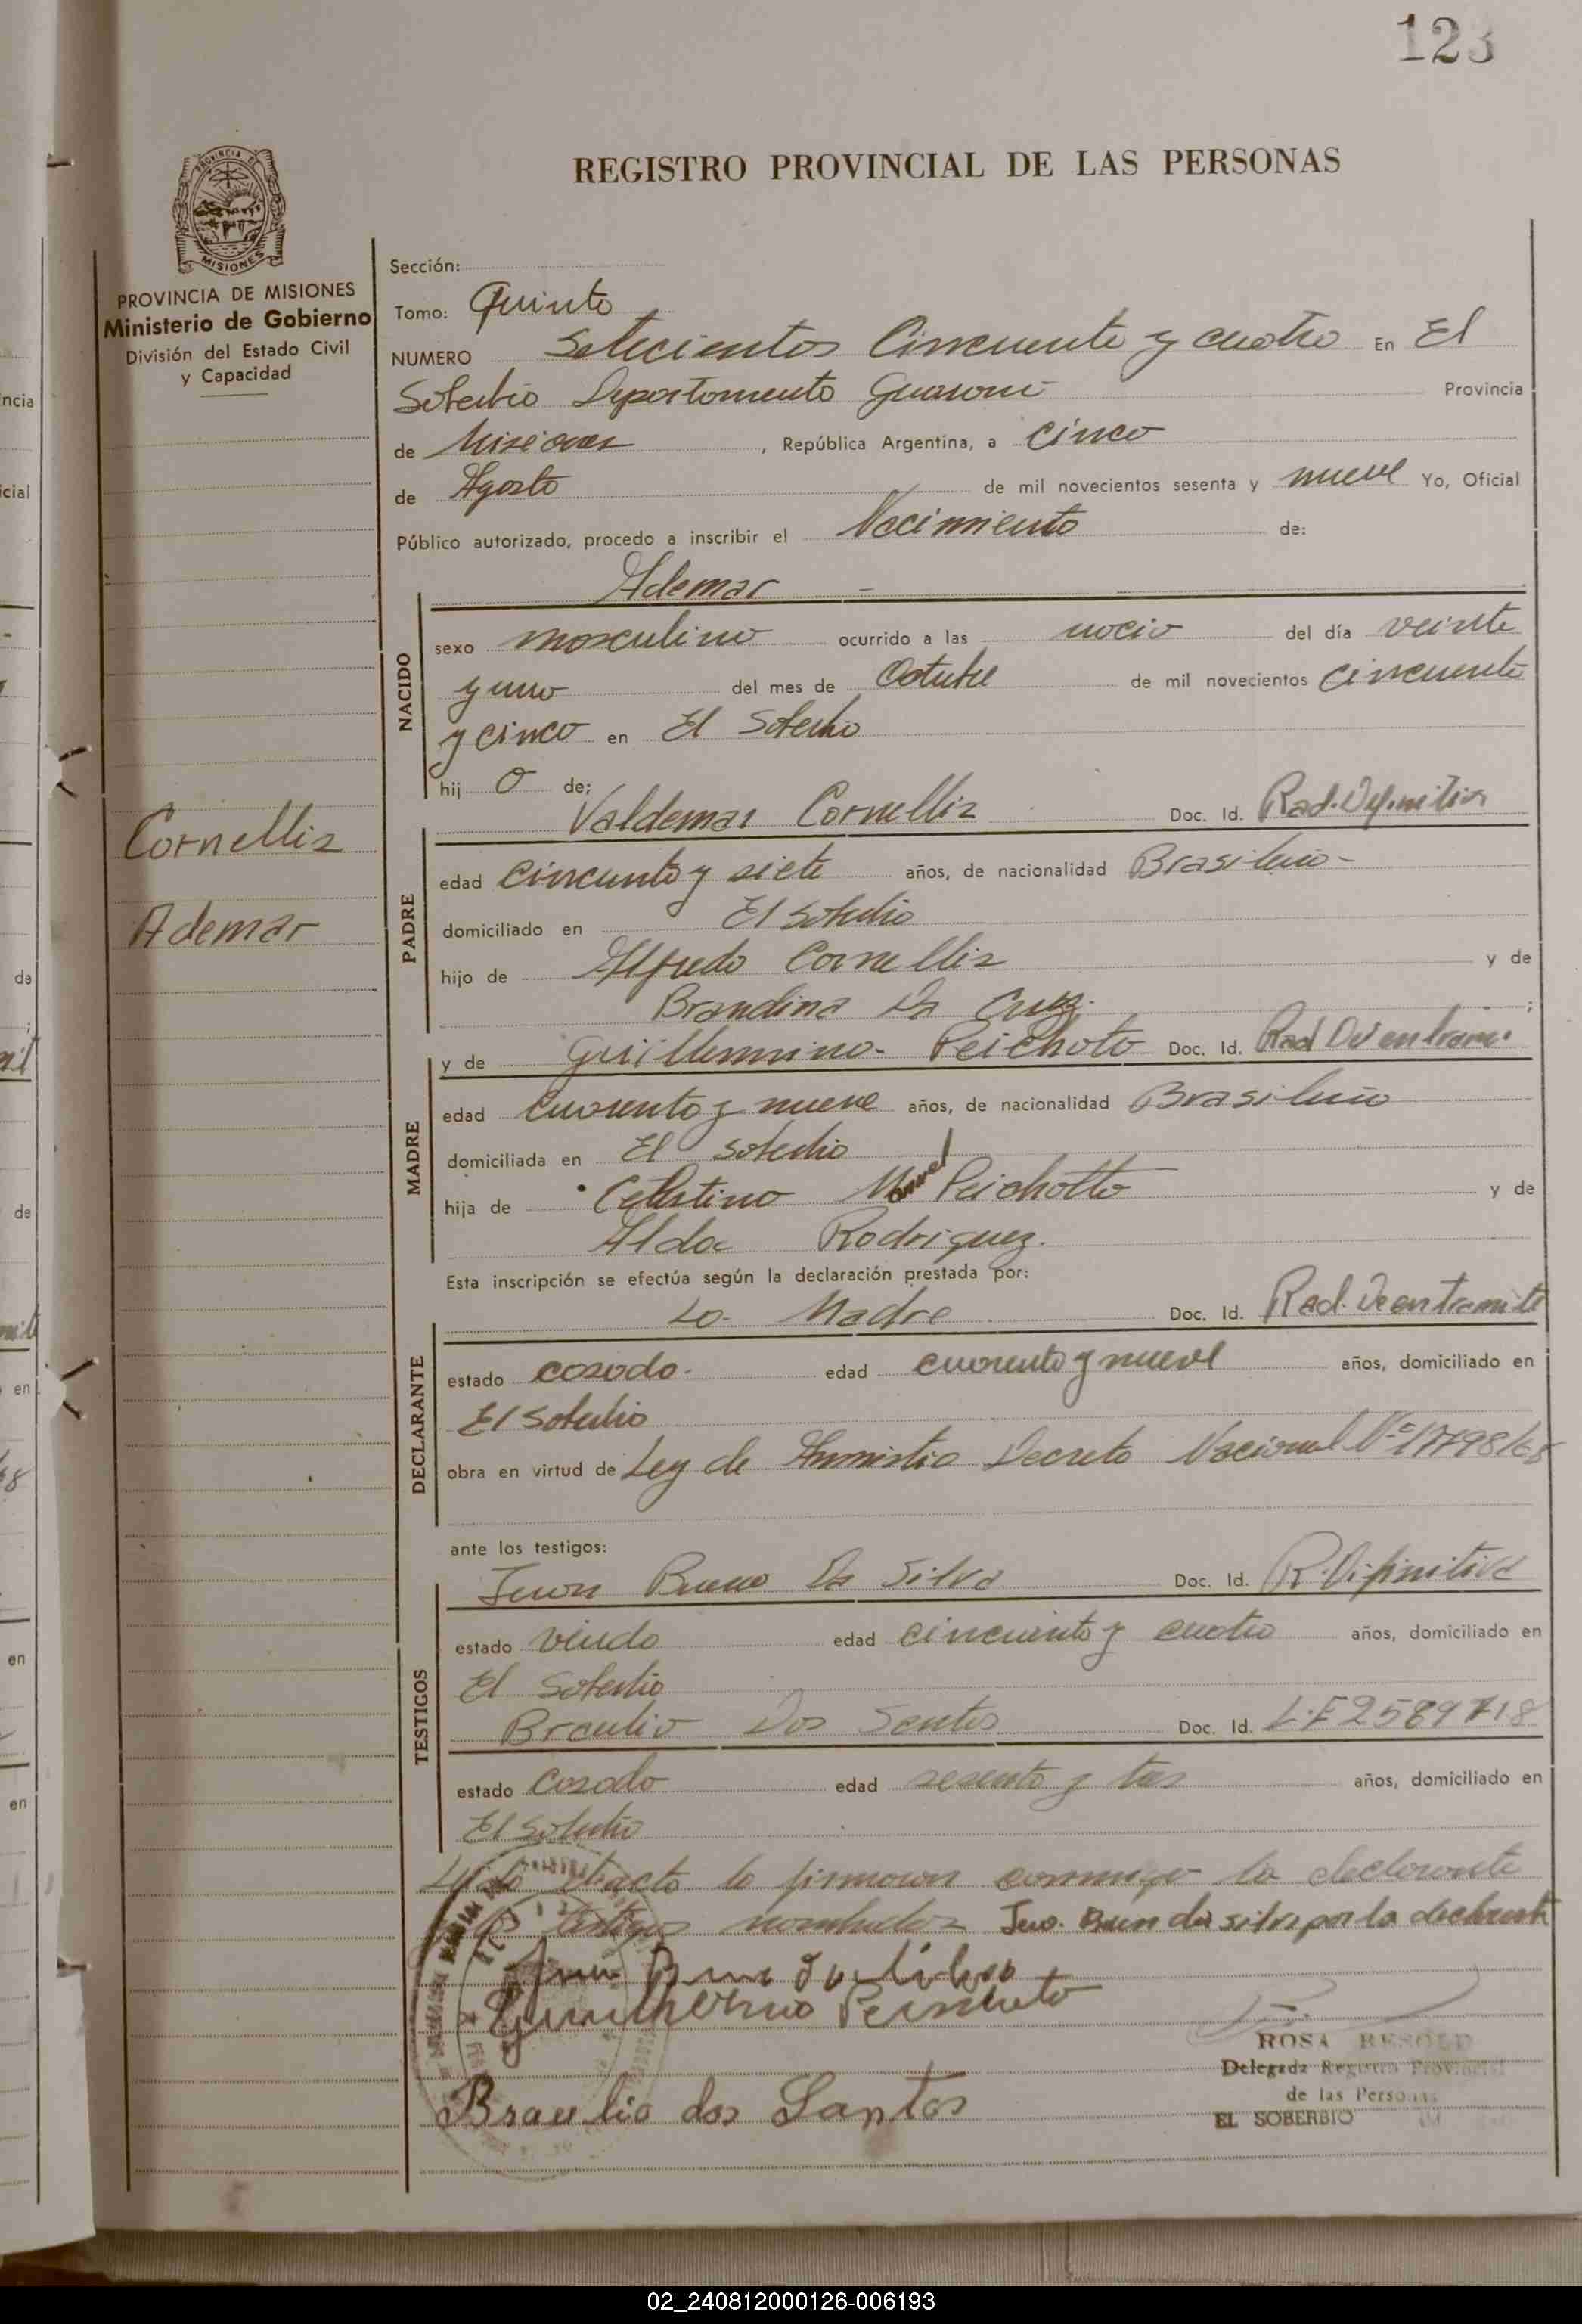 123
REGISTRO PROVINCIAL DE LAS PERSONAS
PROVINCIA DE MISIONES
Ministerio de Gobierno
División del Estado Civil
y Capacidad
Cornelliz
Ademar
Sección:
Tomo: Quinto
NUMERO Setecientos Cincuenta y cuatro En El
Soberbio Departamento Guarani Provincia
de Misiones, República Argentina, a cinco
de Agosto de mil novecientos sesenta y nueve Yo, Oficial
Público autorizado, procedo a inscribir el Nacimiento de:
Ademar -
NACIDO
sexo masculino ocurrido a las nacio del día veinte
y uno del mes de Octubre de mil novecientos cincuenta
y cinco en El Soberbio
hij o de;
Valdemar Cornelliz Doc. Id. Rad. Definitiva
PADRE
edad cincuenta y siete años, de nacionalidad Brasileño-
domiciliado en El Soberbio
hijo de Alfredo Cornelliz y de
Brandina Da Cruz.
y de Guillermina- Peichoto Doc. Id. Rad
MADRE
edad cuarenta y nueve años, de nacionalidad Brasileño
domiciliada en El Soberbio
hija de Celestino Manuel Peichotto y de
Alda Rodriguez.
Esta inscripción se efectúa según la declaración prestada por:
La Madre Doc. Id. Rad. De en tramite
DECLARANTE
estado casada- edad cuarenta y nueve años, domiciliado en
El Soberbio
obra en virtud de Ley de Amnistia Decreto Nacional Nº 17798/68
ante los testigos:
Juan Bueno Da Silva Doc. Id. R. Difinitiva
TESTIGOS
estado viudo edad cincuenta y cuatro años, domiciliado en
El Soberbio
Braulio Dos Santos Doc. Id. L.E 2589718
estado casado edad sesenta y tres años, domiciliado en
El Soberbio
acta la firmaron conmigo la declarante
testigos nombrados Bueno da silva por la declarante
Guilherma
Braulio dos Santos
ROSA RESOLD
Delegada Registro Provincial
de las Personas
EL SOBERBIO
02_240812000126-006193